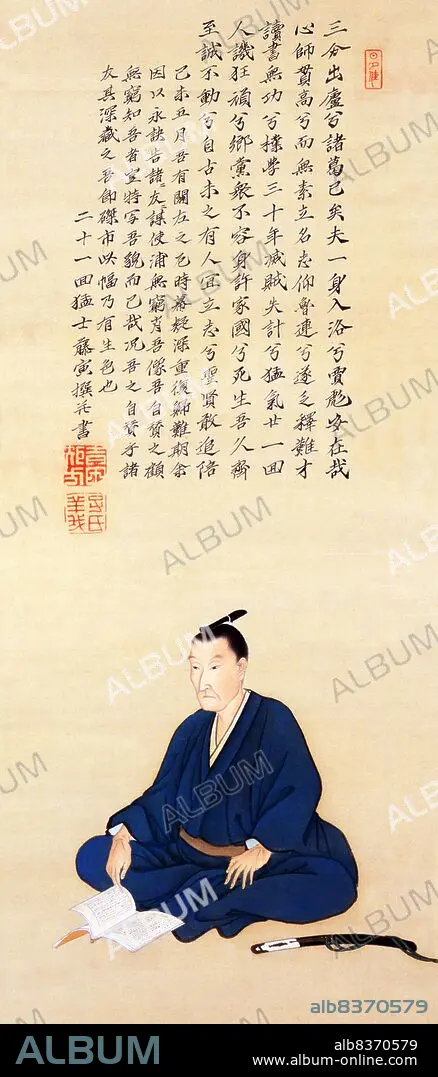 三分出廬兮諸葛已矣夫一身入洛兮賈彪安在哉
心師貫高兮而無素立名志仰魯連兮遂乏釋難才
讀書無功兮樸學三十年滅賊失計兮猛氣廿一回
人譏狂頑兮鄉黨衆不容身許家國兮死生吾久齊
至誠不動兮自古未之有人宜立志兮聖賢敢追陪
己未五月吾有關左之厄時幕疑深重復歸難期余
因以永訣告諸〻友〻謀使浦無窮肖吾像吾自賛之顧
無窮知吾者豈特写吾貌而已哉況吾之自賛乎諸
友其深藏之吾即磔市此幅乃有生色也
二十一回猛士藤寅撰并書
alb8370579
ALBUM
alb8370579
www.album-online.com